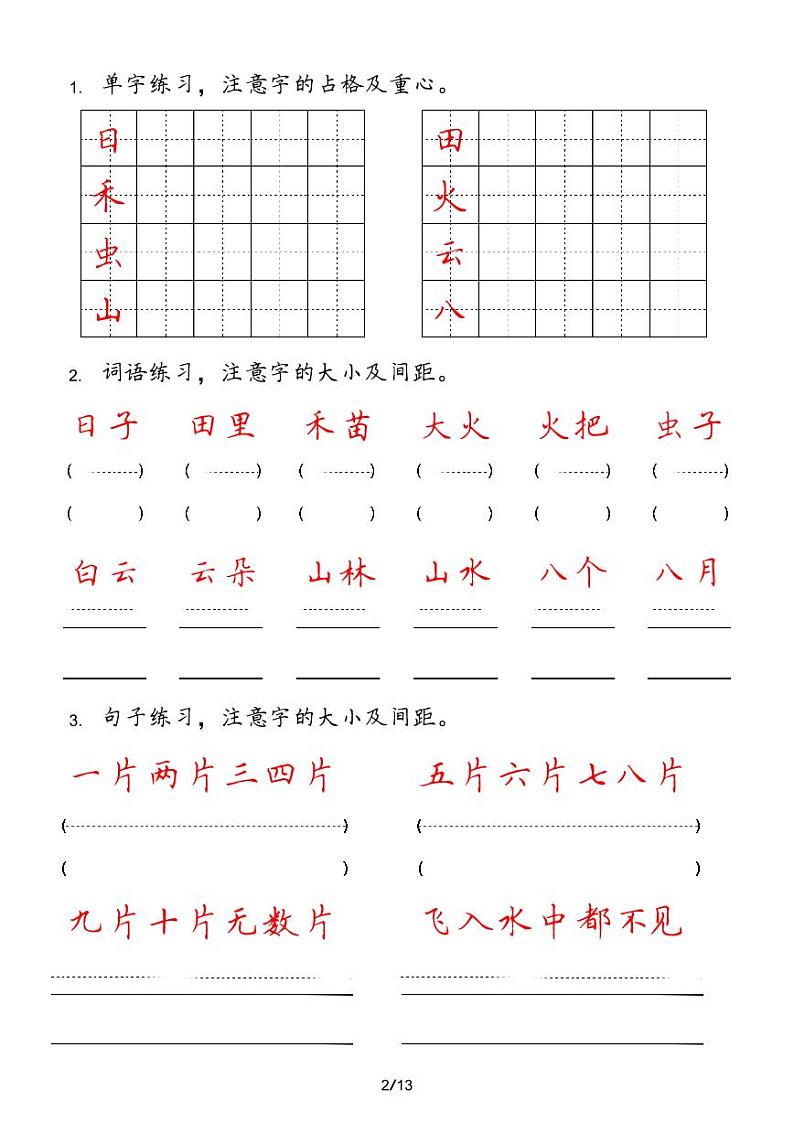 1. 单字练习，注意字的占格及重心。
日 田
禾 火
虫 云
山 八
2. 词语练习，注意字的大小及间距。
日子 田里 禾苗 大火 火把 虫子
( ) ( ) ( ) ( ) ( ) ( )
( ) ( ) ( ) ( ) ( ) ( )
白云 云朵 山林 山水 八个 八月
3. 句子练习，注意字的大小及间距。
一片两片三四片 五片六片七八片
( ) ( )
( ) ( )
九片十片无数片 飞入水中都不见
2/13